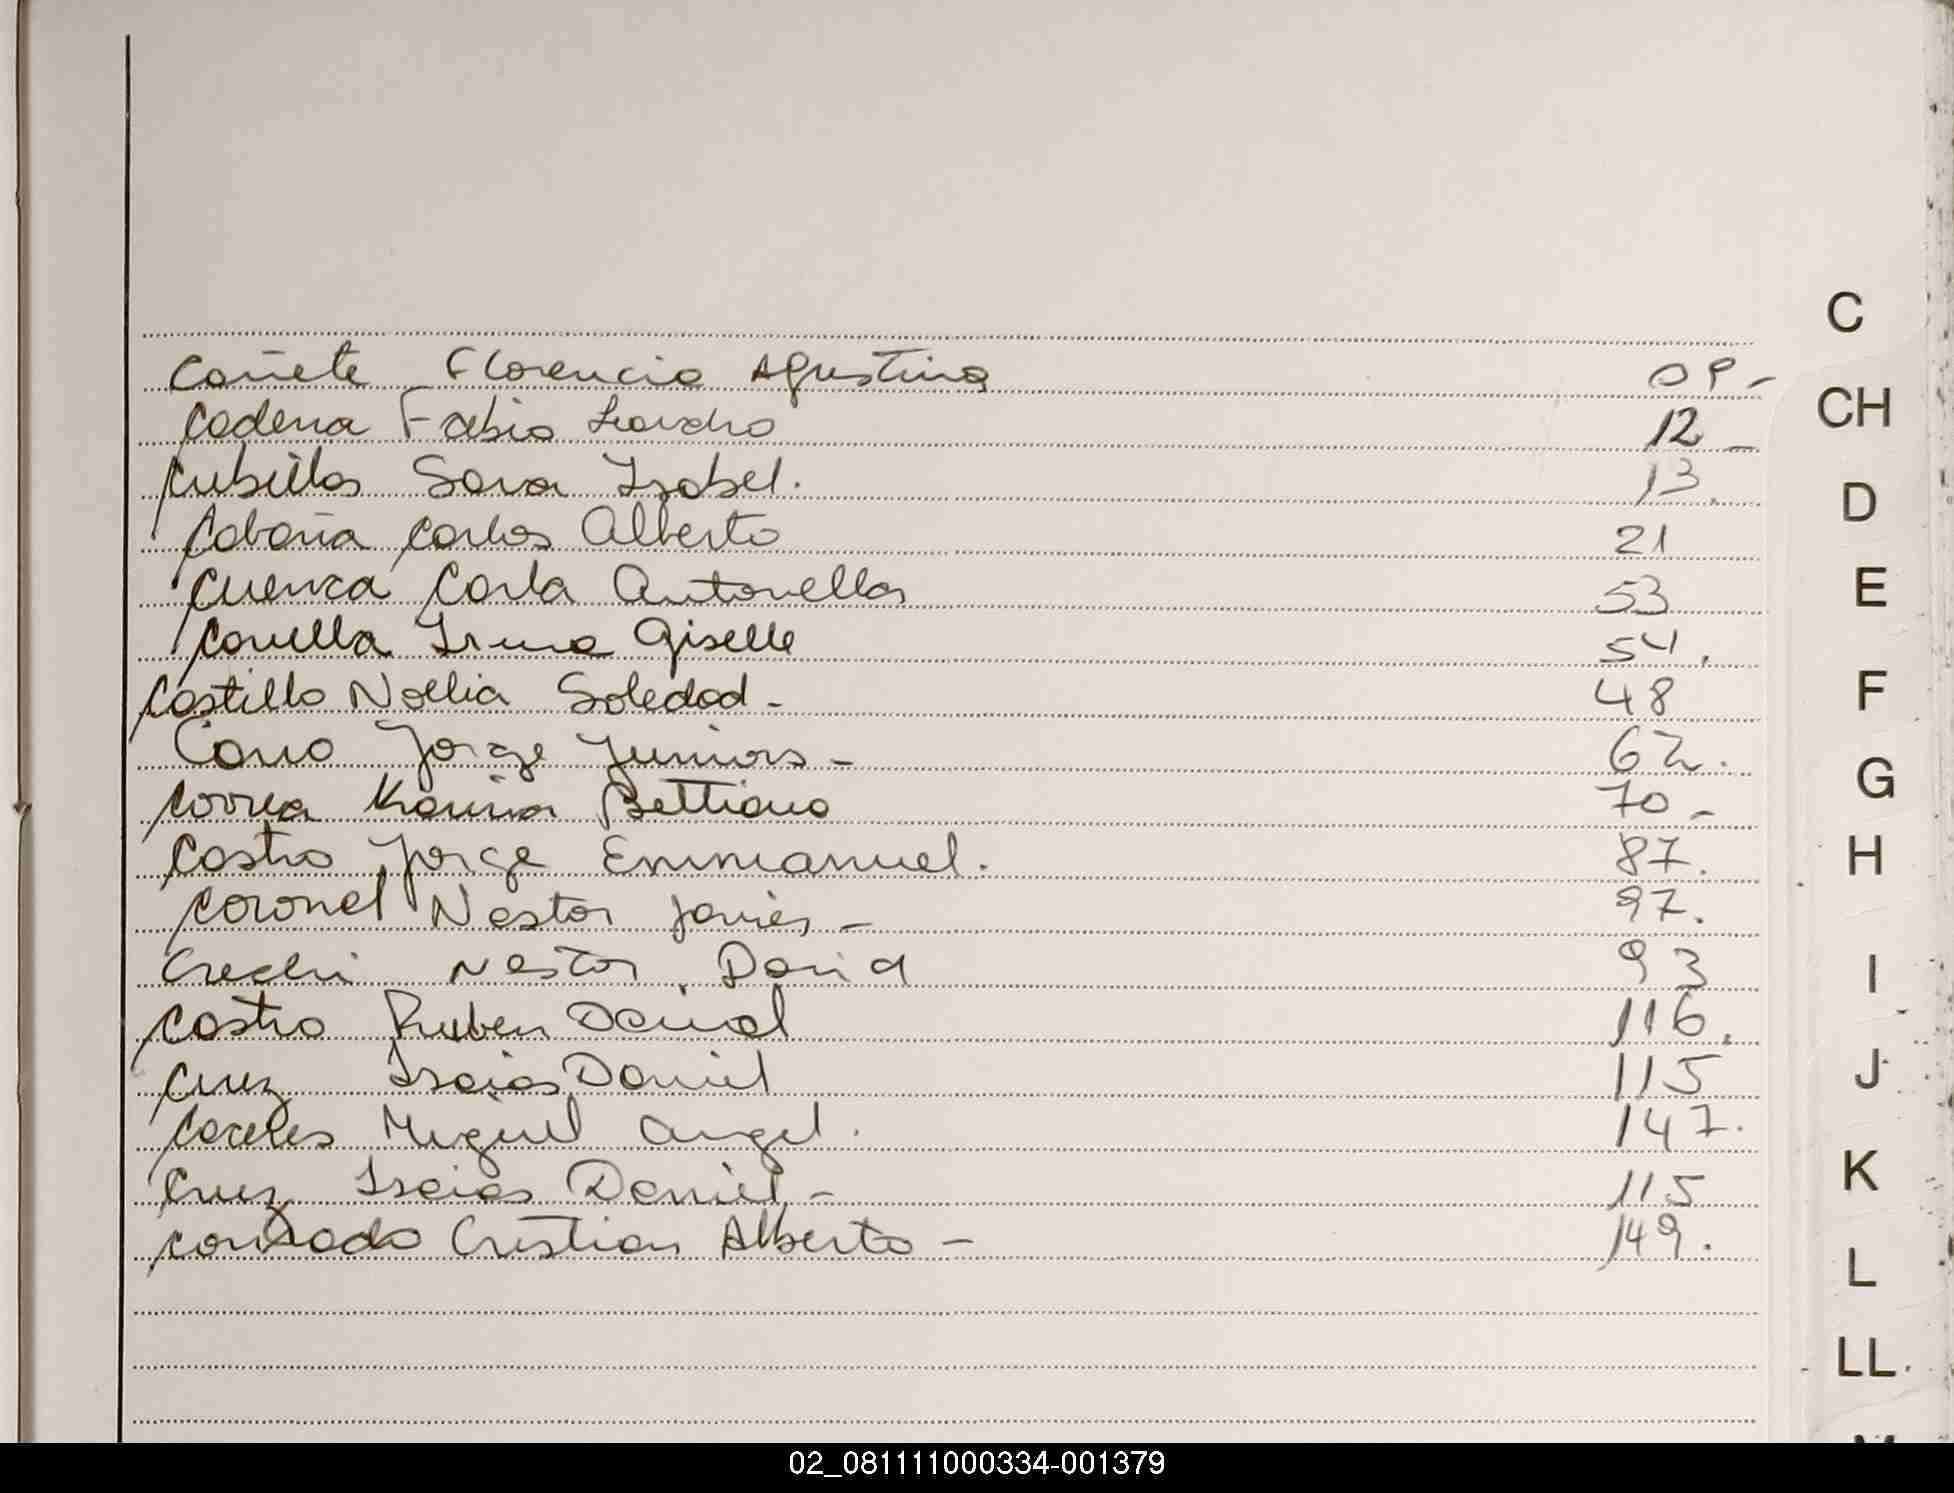 Cañete Florencia Agustina 09-
Cadena Fabio Leandro 12-
Cubillas Sara Isabel. 13.
Cabaña Carlos Alberto 21
Cuenca Carla Antonella 53
Irina Giselle 54.
Castillo Noelia Soledad- 48
Cano Jorge Juniors- 62.
Correa Karina Bettiana 70-
Castro Jorge Emmanuel. 87.
Coronel Nestor Javier- 97.
Crechi Nestor David 93
Castro Ruben Daniel 116.
Cruz Isaias Daniel 115
Caceles Miguel Angel. 147.
Cruz Isaias Daniel- 115
Conrado Cristian Alberto- 149.
C
CH
D
E
F
G
H
I
J
K
L
LL
02_081111000334-001379